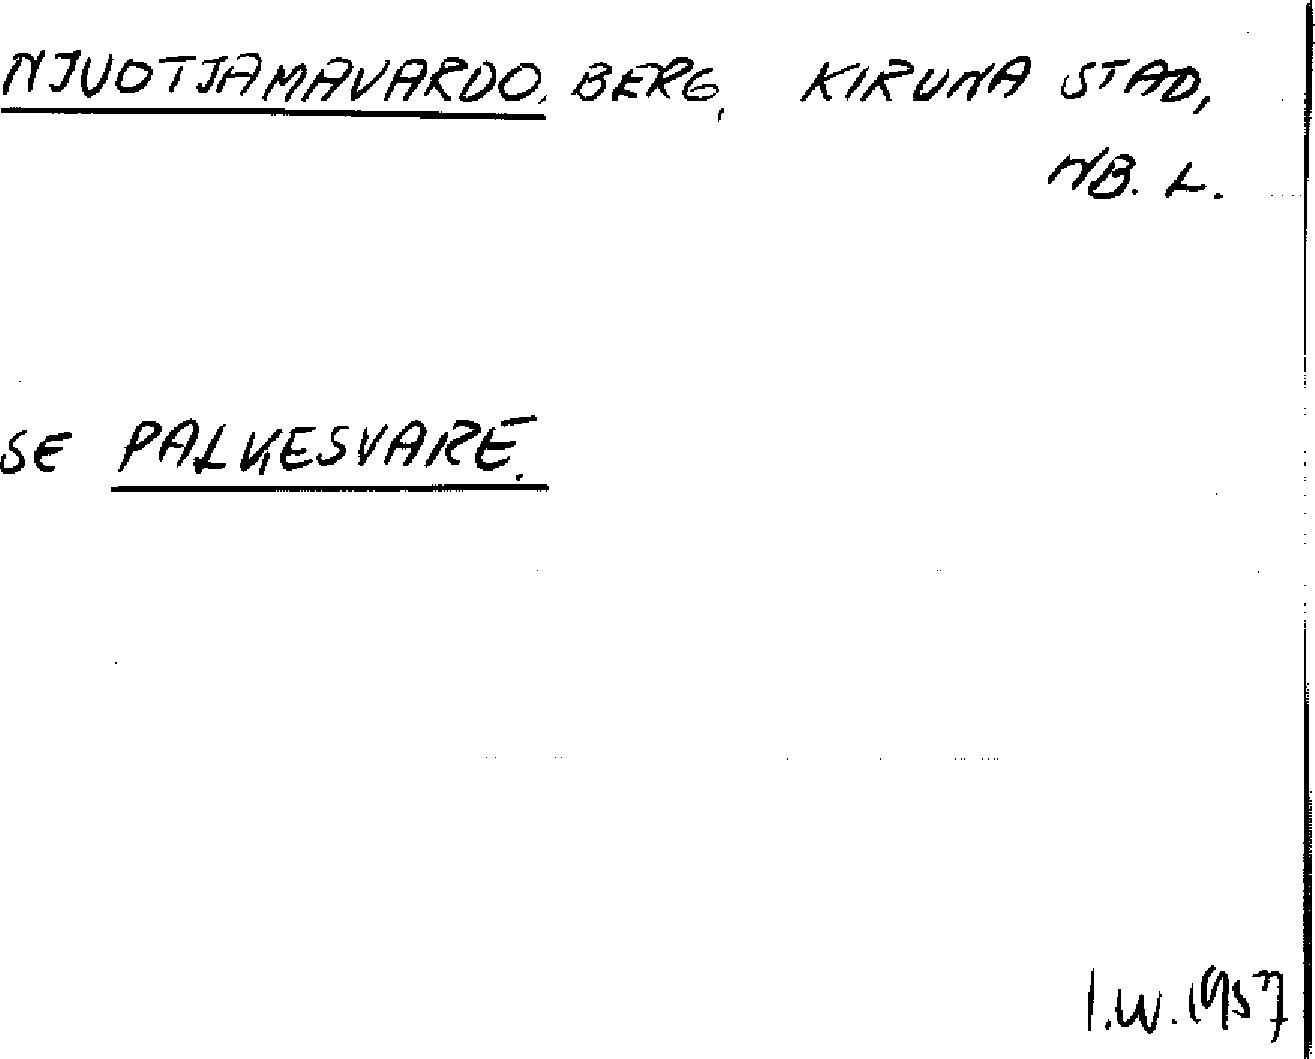 NJUOTJAMAVARDO, BERG, KIRUNA STAD,
NB. L.
SE PALKESVARE.
I.W. 1957